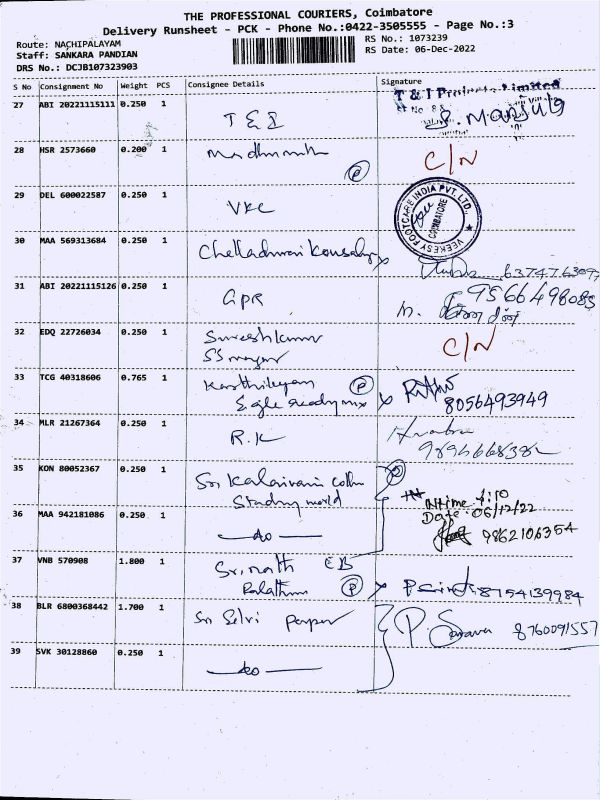 THE PROFESSIONAL COURIERS, Coimbatore
Delivery Runsheet - PCK - Phone No.:0422-3505555 - Page No.:3
Route: NACHIPALAYAM
Staff: SANKARA PANDIAN
DRS No.: DCJB107323903
RS No.: 1073239
RS Date: 06-Dec-2022
S No Consignment No Weight PCS Consignee Details Signature
27 ABI 20221115111 0.250 1 T & I
T & I Limited
28 HSR 2573660 0.200 1 P C/N
29 DEL 600022587 0.250 1 VKC
VEEKESY FOOTCARE INDIA PVT. LTD.,
COIMBATORE
30 MAA 569313684 0.250 1 Chelladurai
31 ABI 20221115126 0.250 1 GPR 9566498085
32 EDQ 22726034 0.250 1 Sureshkumar C/N
SS nagar
33 TCG 40318606 0.765 1 Karthikeyan P
Eagle readymix 8056493949
34 MLR 21267364 0.250 1 R.K
35 KON 80052367 0.250 1 Sri Kalaivani P
Time
Date 06/12/22
36 MAA 942181086 0.250 1 do 9862106354
37 VNB 570908 1.800 1 Srinath CB
P 8754139984
38 BLR 6800368442 1.700 1 Sri Selvi P. 8760091557
39 SVK 30128860 0.250 1 do